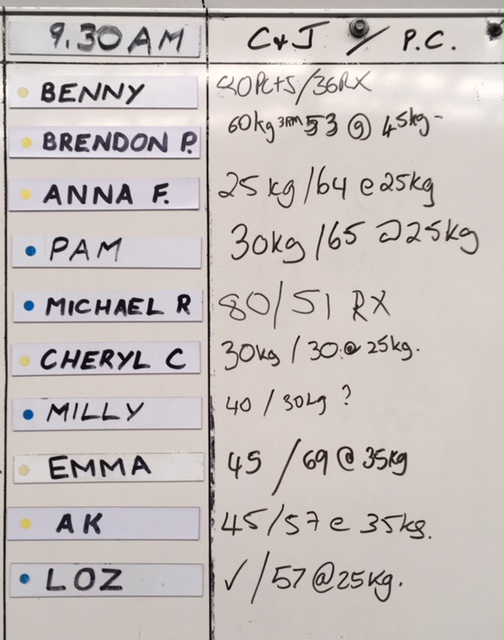 9.30AM C+J / P.C.
BENNY 80Pt5/36RX
BRENDON P. 60kg 3RM 53 @ 45kg-
ANNA F. 25kg/64 e 25kg
PAM 30kg/65 @25kg
MICHAEL R 80/51 RX
CHERYL C 30kg/30.@ 25kg.
MILLY 40/30kg ?
EMMA 45/69@35kg
AK 45/57 e 35kg.
LOZ ✓/57@25kg.